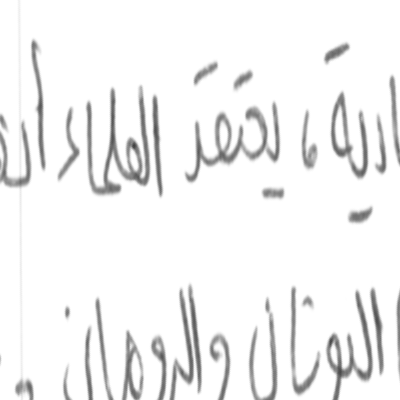 ادية ، يعتقد العلماء أن
اليونان والرومان و